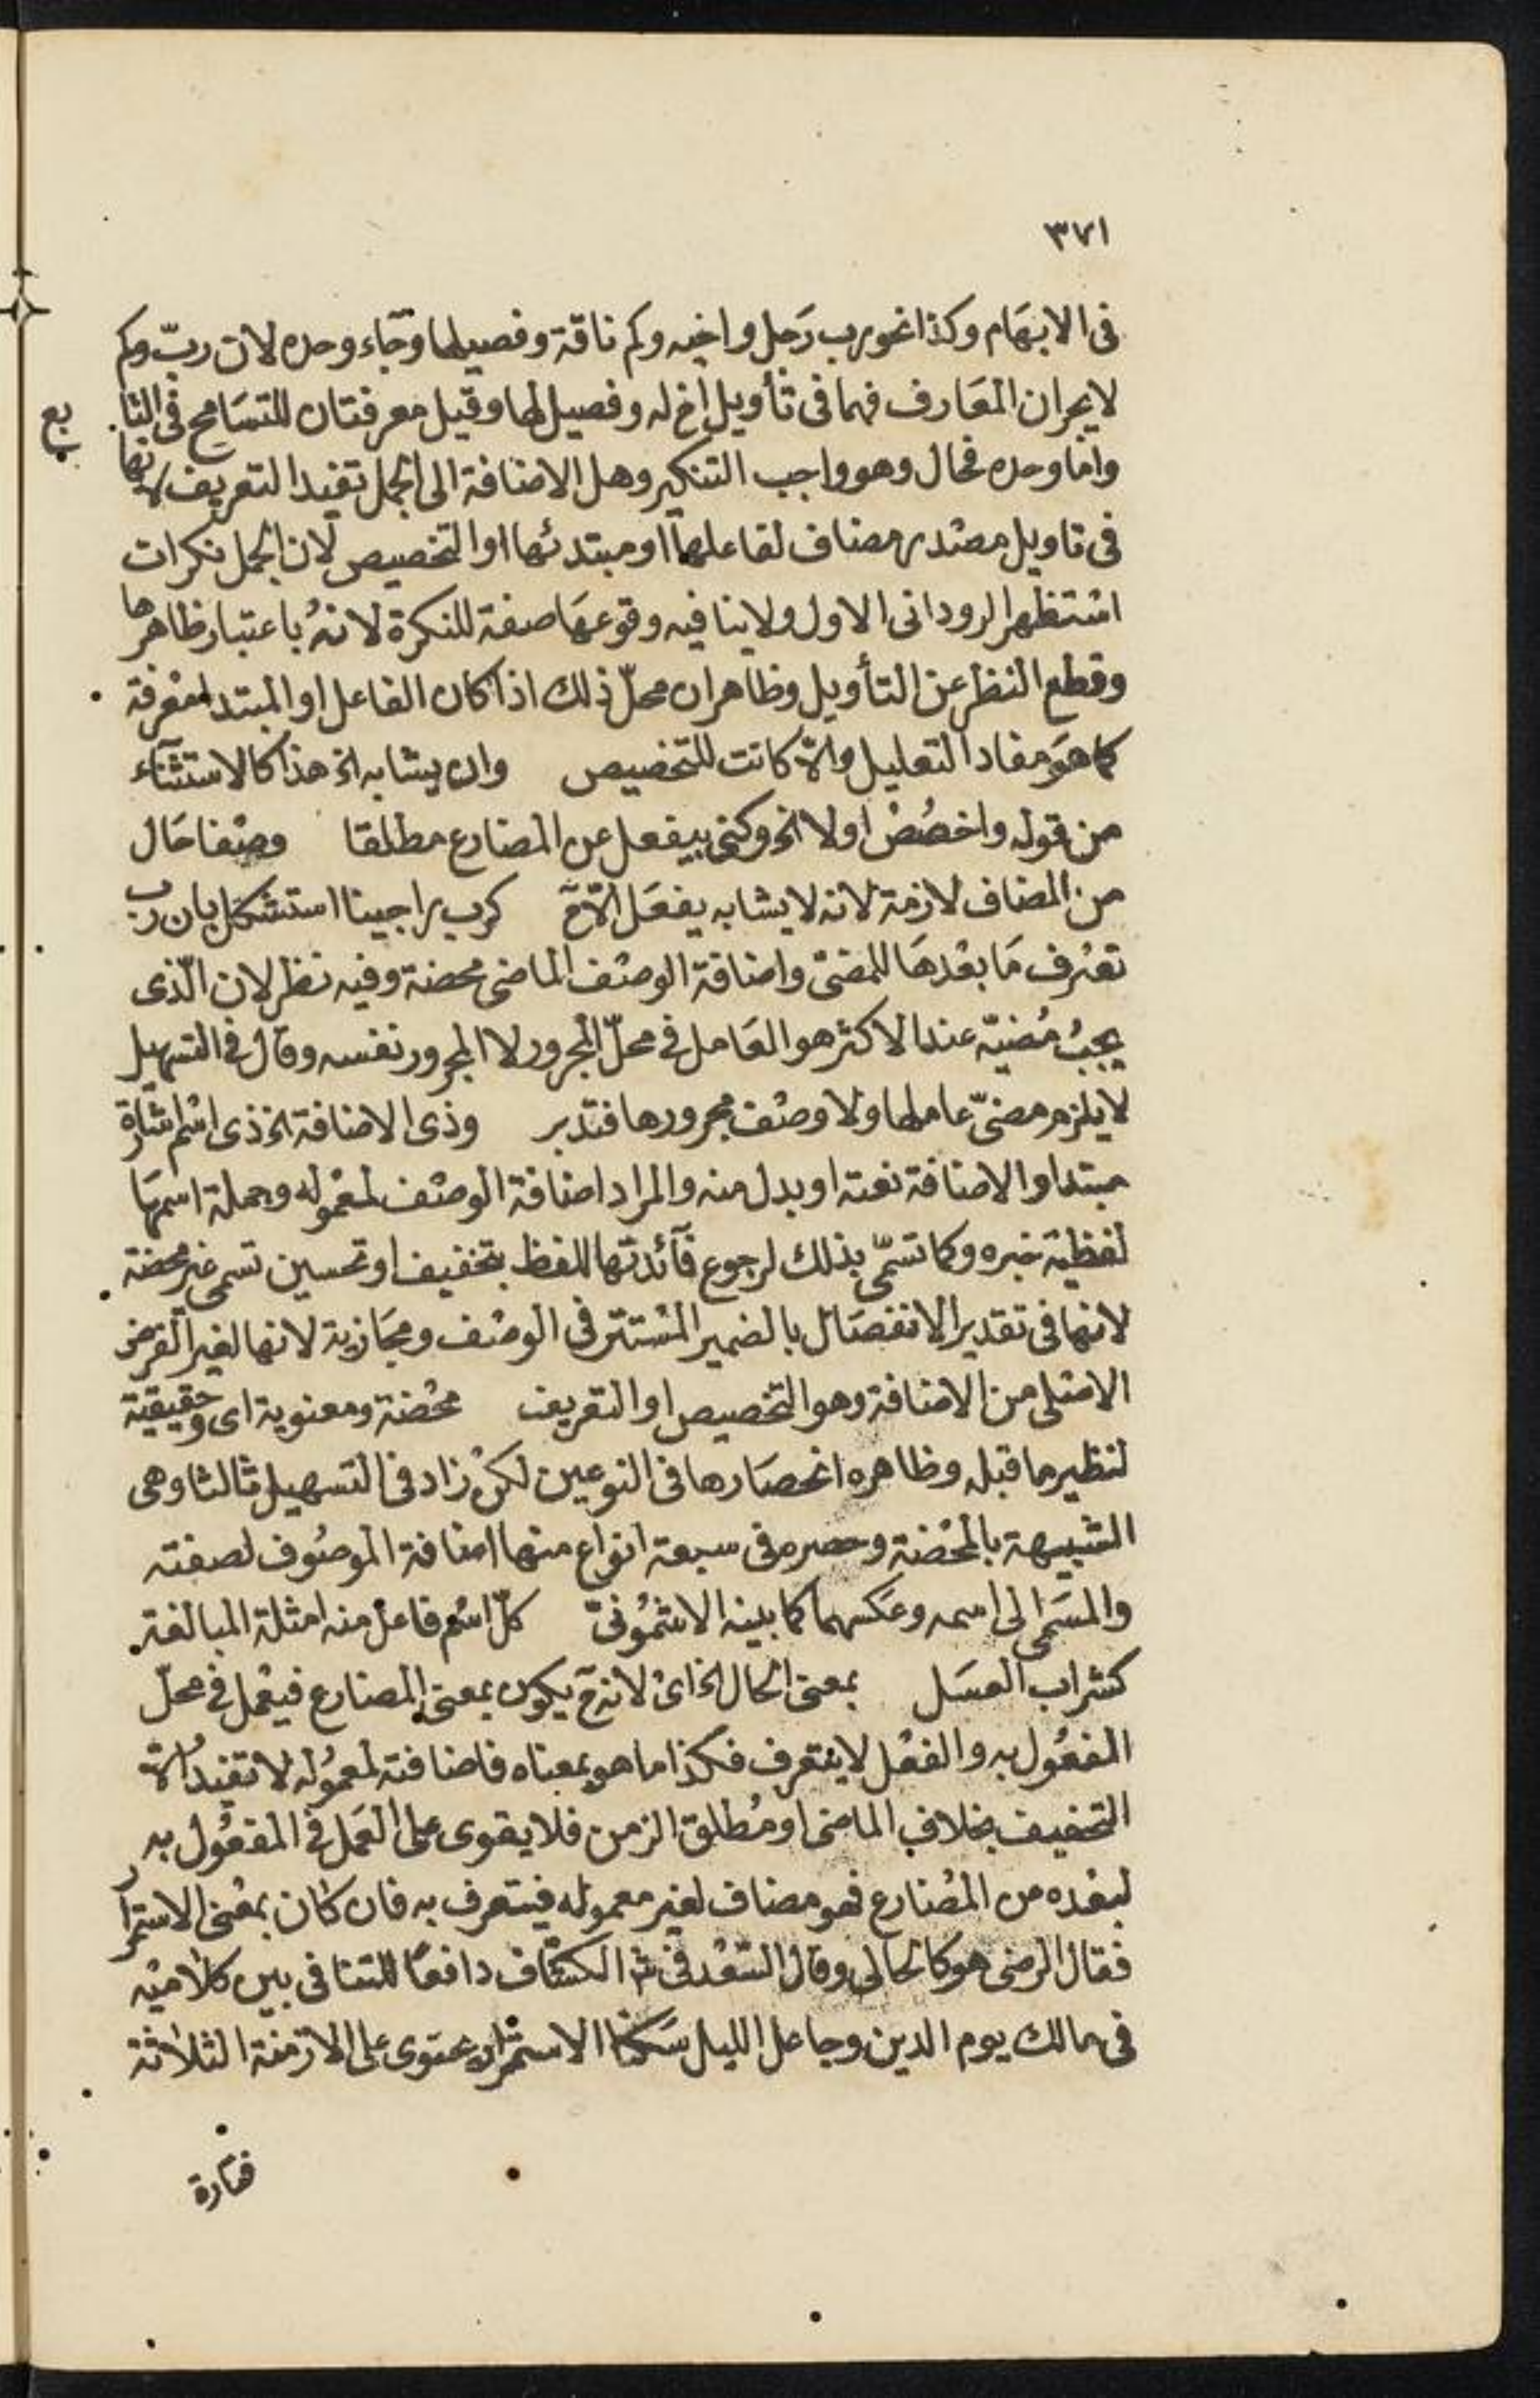 ٣٧١
فى الابهام وكذا نحو رب رجل واخيه وكم ناقة وفصيلها وجاء وحده لان ربّ وكم
لا يجران المعارف فهما فى تأويل اخ له وفصيل لها وقيل معرفتان للتسامح فى التا
بع
واما وحده فحال وهو واجب التنكير وهل الاضافة الى الجمل تفيد التعريف لانها
فى تاويل مصدر مضاف لفاعلها او مبتدئها او التخصيص لان الجمل نكرات
استظهر الرودانى الاول ولا ينافيه وقوعها صفة للنكرة لانه باعتبار ظاهرها
وقطع النظر عن التأويل وظاهر ان محلّ ذلك اذا كان الفاعل او المبتدا معرفة
كما هو مفاد التعليل والّا كانت للتخصيص وان يشابه الخ هذا كالاستثناء
من قوله واخصص اولا الخ وكنى بيفعل عن المضارع مطلقا وصفا حال
من المضاف لازمة لانه لا يشابه يفعل الّا ح كرب راجينا استشكل بان رب
تصرف ما بعدها للمضىّ واضافة الوصف الماضى محضة وفيه نظر لان الّذى
يجب مضيّه عند الاكثر هو العامل فى محلّ المجرور لا المجرور نفسه وقال فى التسهيل
لا يلزم مضىّ عاملها ولا وصف مجرورها فتدبر وذى الاضافة الخ ذى اسم اشارة
مبتدا والاضافة نعته او بدل منه والمراد اضافة الوصف لمعموله وجملة اسمها
لفظية خبره وكما تسمّى بذلك لرجوع فآئدتها للفظ بتخفيف او تحسين تسمى غير محضة
لانها فى تقدير الانفصال بالضمير المستتر فى الوصف ومجازية لانها لغير الغرض
الاصلى من الاضافة وهو التخصيص او التعريف محضة ومعنوية اى وحقيقية
لنظير ما قبله وظاهره انحصارها فى النوعين لكن زاد فى التسهيل ثالثا وهى
الشبيهة بالمحضة وحصره فى سبعة انواع منها اضافة الموصوف لصفته
والمسمى الى اسمه وعكسهما كما بينه الاشمونىّ كلّ اسم فاعل منه امثلة المبالغة
كشراب العسل بمعنى الحال الخ اى لانه ح يكون بمعنى المضارع فيعمل فى محلّ
المفعول به والفعل لا يتعرف فكذا ما هو بمعناه فاضافته لمعموله لا تفيد الّا
التخفيف بخلاف الماضى او مطلق الزمن فلا يقوى على العمل فى المفعول به
لبعده من المضارع فهو مضاف لغير معموله فيتعرف به فان كان بمعنى الاستمرار
فقال الرضى هو كالحالى وقال السّعد فى ش الكشّاف دافعًا للتنافى بين كلاميه
فى مالك يوم الدين وجاعل الليل سكنا الاستمرار محتوى على الازمنة الثلاثة
فتارة